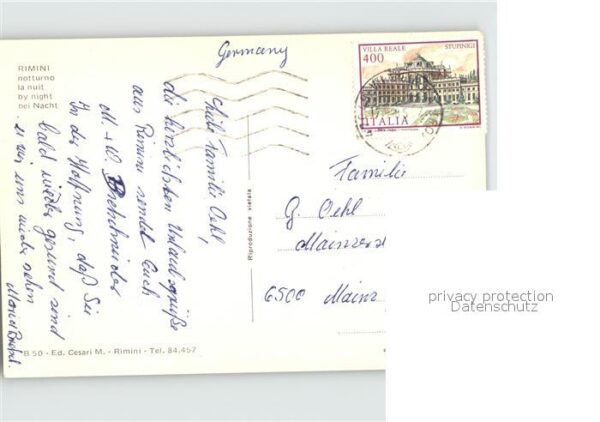 RIMINI
notturno
la nuit
by night
bei Nacht
Germany
VILLA REALE STUPINIGI
400
ITALIA
Familie Oehl,
die herzlichsten Urlaubsgrüße
aus Rimini sendet Euch
M. + W.
In der Hoffnung, daß Sie
bald wieder gesund sind
u. wir uns wieder sehen
Riproduzione vietata
Familie
G. Oehl
Mainzerst
6500 Mainz
B 50 - Ed. Cesari M. - Rimini - Tel. 84.457
privacy protection
Datenschutz